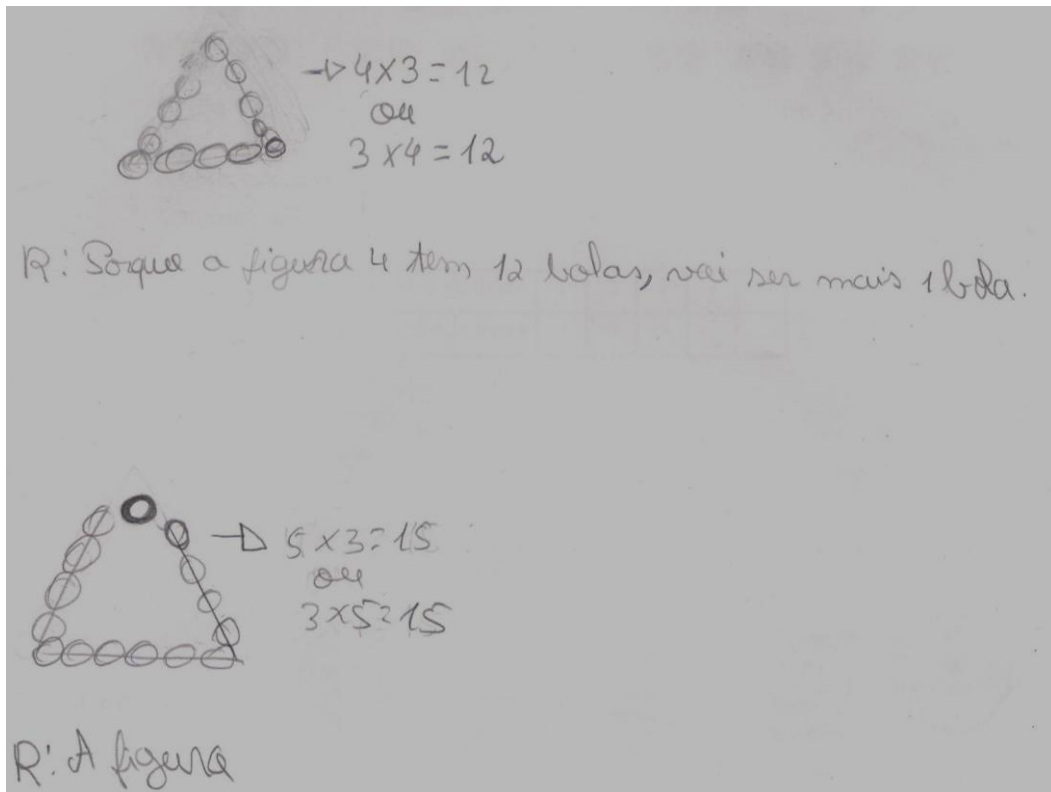 4×3=12
ou
3×4=12
R: Porque a figura 4 tem 12 bolas, vai ser mais 1 bola.
5×3=15
ou
3×5=15
R: A figura